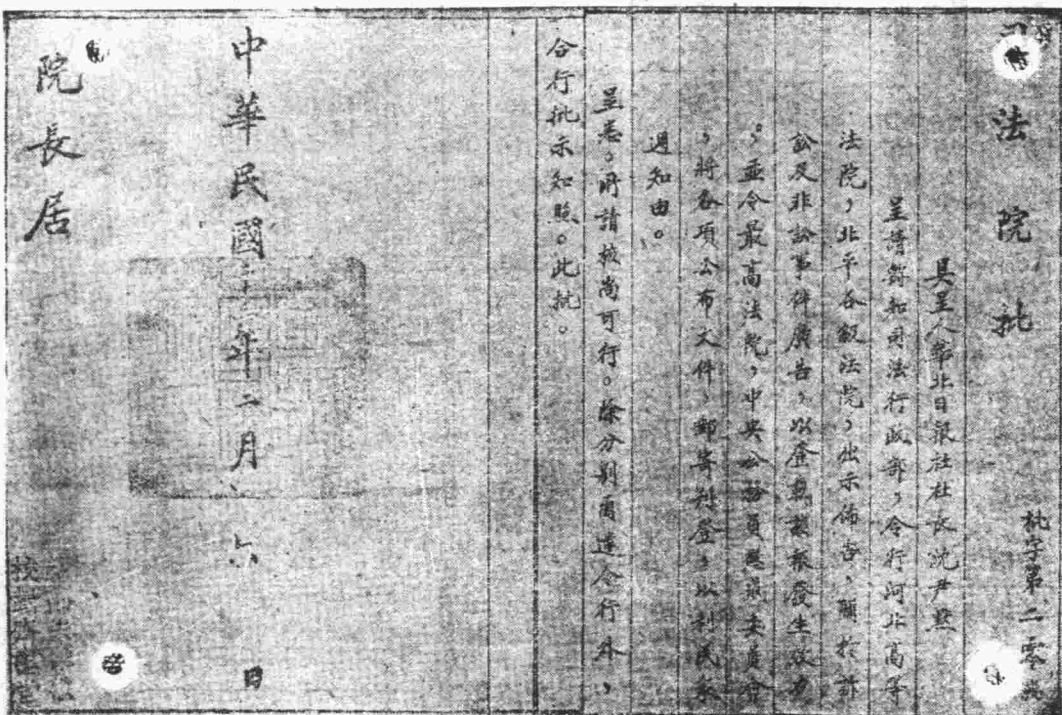 司法院批
批字第二零
具呈人華北日報社社長沈尹默
呈為請飭知司法行政部,令行河北高等
法院,北平各級法院,出示佈告,關於訴
訟及非訟事件廣告,以登載該報發生效力
。並令最高法院,中央公務員懲戒委員會
,將各項公布文件,郵寄刊登,以利民眾
週知由。
呈悉。所請核尚可行。除分別函達令行外,
合行批示知照。此批。
中華民國二十一年二月六日
院長居